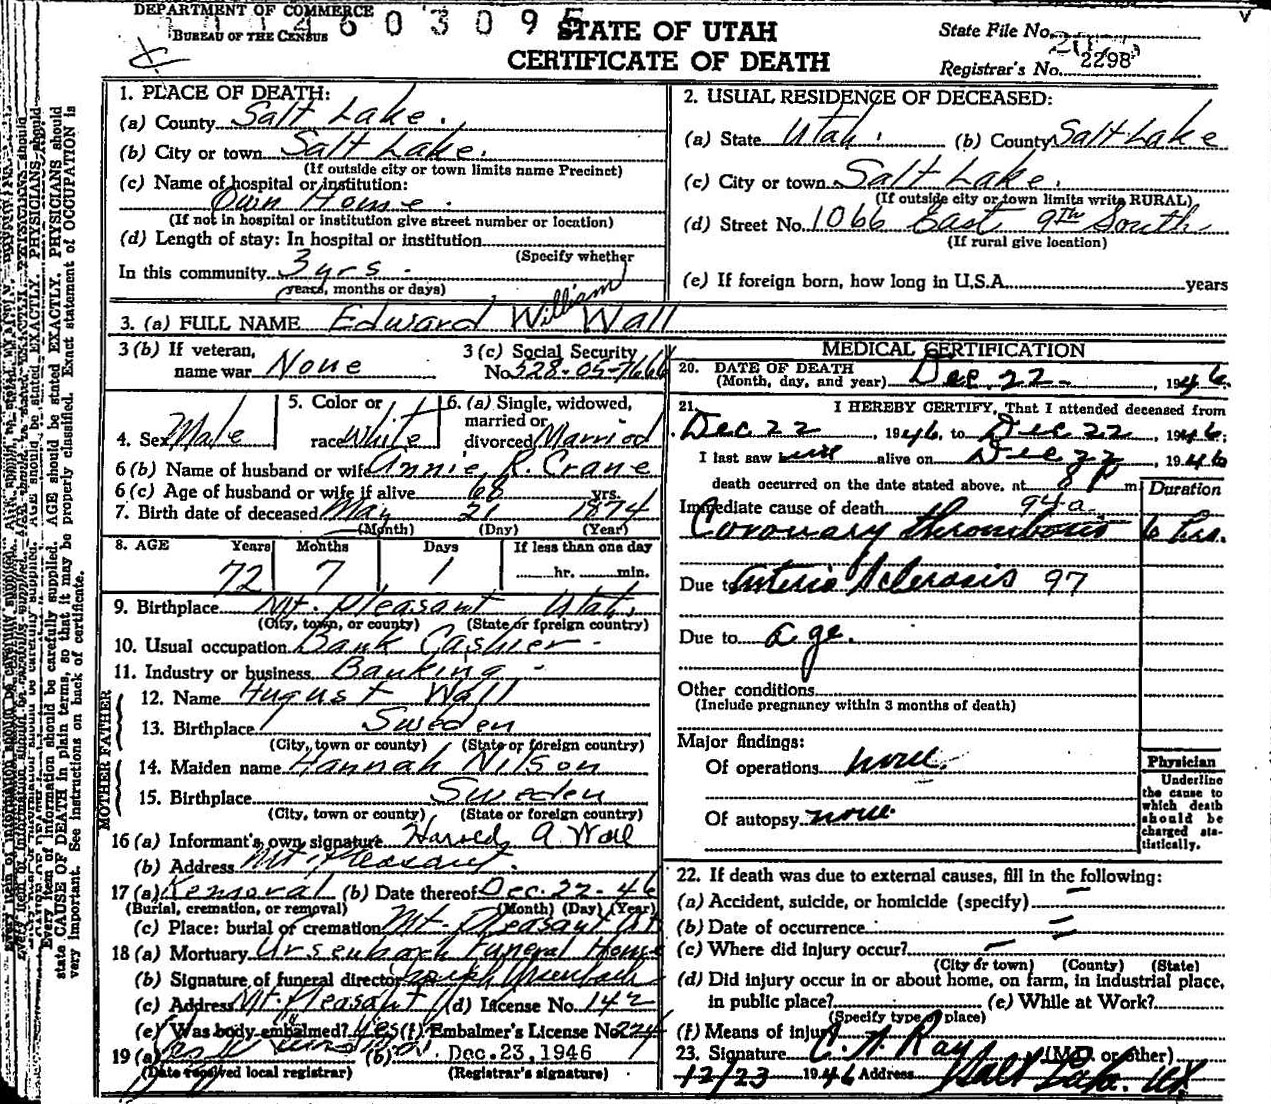 DEPARTMENT OF COMMERCE
BUREAU OF THE CENSUS
STATE OF UTAH
CERTIFICATE OF DEATH
State File No.
Registrar's No. 2298
1. PLACE OF DEATH:
(a) County Salt Lake.
(b) City or town Salt Lake.
(If outside city or town limits name Precinct)
(c) Name of hospital or institution:
Own Home.
(If not in hospital or institution give street number or location)
(d) Length of stay: In hospital or institution
(Specify whether
In this community 3 yrs.
years, months or days)
2. USUAL RESIDENCE OF DECEASED:
(a) State Utah. (b) County Salt Lake
(c) City or town Salt Lake.
(If outside city or town limits write RURAL)
(d) Street No. 1066 East 9th South
(If rural give location)
(e) If foreign born, how long in U.S.A. years
3. (a) FULL NAME Edward William Wall
3 (b) If veteran, name war None
3 (c) Social Security No. 528-05-7666
4. Sex Male
5. Color or race White
6. (a) Single, widowed, married or divorced Married
6 (b) Name of husband or wife Annie R. Crane
6 (c) Age of husband or wife if alive 68 yrs.
7. Birth date of deceased May 21 1874
(Month) (Day) (Year)
8. AGE Years Months Days If less than one day
72 7 1 hr. min.
9. Birthplace Mt. Pleasant Utah.
(City, town, or county) (State or foreign country)
10. Usual occupation Bank Cashier
11. Industry or business Banking
FATHER
12. Name August Wall
13. Birthplace Sweden
(City, town or county) (State or foreign country)
MOTHER
14. Maiden name Hannah Nilson
15. Birthplace Sweden
(City, town or county) (State or foreign country)
16 (a) Informant's own signature Harold A. Wall
(b) Address Mt. Pleasant.
17 (a) (b) Date thereof Dec. 22-46
(Burial, cremation, or removal) (Month) (Day) (Year)
(c) Place: burial or cremation Mt. Pleasant Ut
18 (a) Mortuary Ursenbach Funeral Home
(b) Signature of funeral director Joseph Ursenbach
(c) Address Mt. Pleasant (d) License No. 142
(e) Was body embalmed? Yes (f) Embalmer's License No. 224
19 (a) (b) Dec. 23, 1946
(Date received local registrar) (Registrar's signature)
MEDICAL CERTIFICATION
20. DATE OF DEATH
(Month, day, and year) Dec 22 - , 1946.
21. I HEREBY CERTIFY, That I attended deceased from
Dec 22 , 1946, to Dec 22 , 1946;
I last saw him alive on Dec 22 , 1946
death occurred on the date stated above, at 8 P m
Duration
Immediate cause of death 94a
Coronary thrombosis 6 hrs.
Due to Arterio Sclerosis 97
Due to age.
Other conditions
(Include pregnancy within 3 months of death)
Major findings:
Of operations none.
Of autopsy none.
Physician
Underline
the cause to
which death
should be
charged sta-
tistically.
22. If death was due to external causes, fill in the following:
(a) Accident, suicide, or homicide (specify)
(b) Date of occurrence
(c) Where did injury occur?
(City or town) (County) (State)
(d) Did injury occur in or about home, on farm, in industrial place,
in public place? (e) While at Work?
(Specify type of place)
(f) Means of injury
23. Signature C. A. Ray (M.D. or other)
12/23 1946 Address Salt Lake. Ut.
state CAUSE OF DEATH in plain terms, so that it may be properly classified. Exact statement of OCCUPATION is
very important. See instructions on back of certificate.